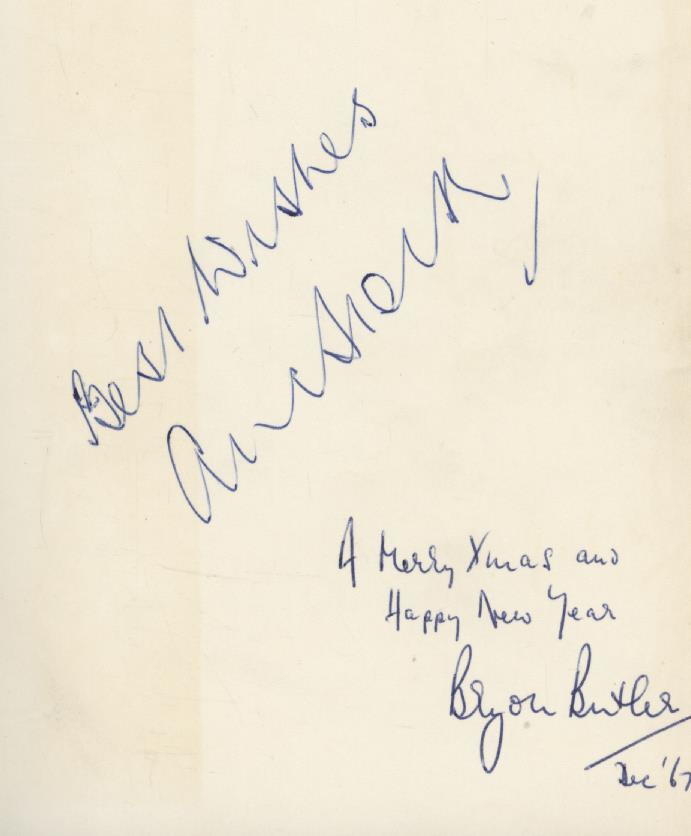 Best Wishes
A Merry Xmas and
Happy New Year
Bryon Butler
Dec '67